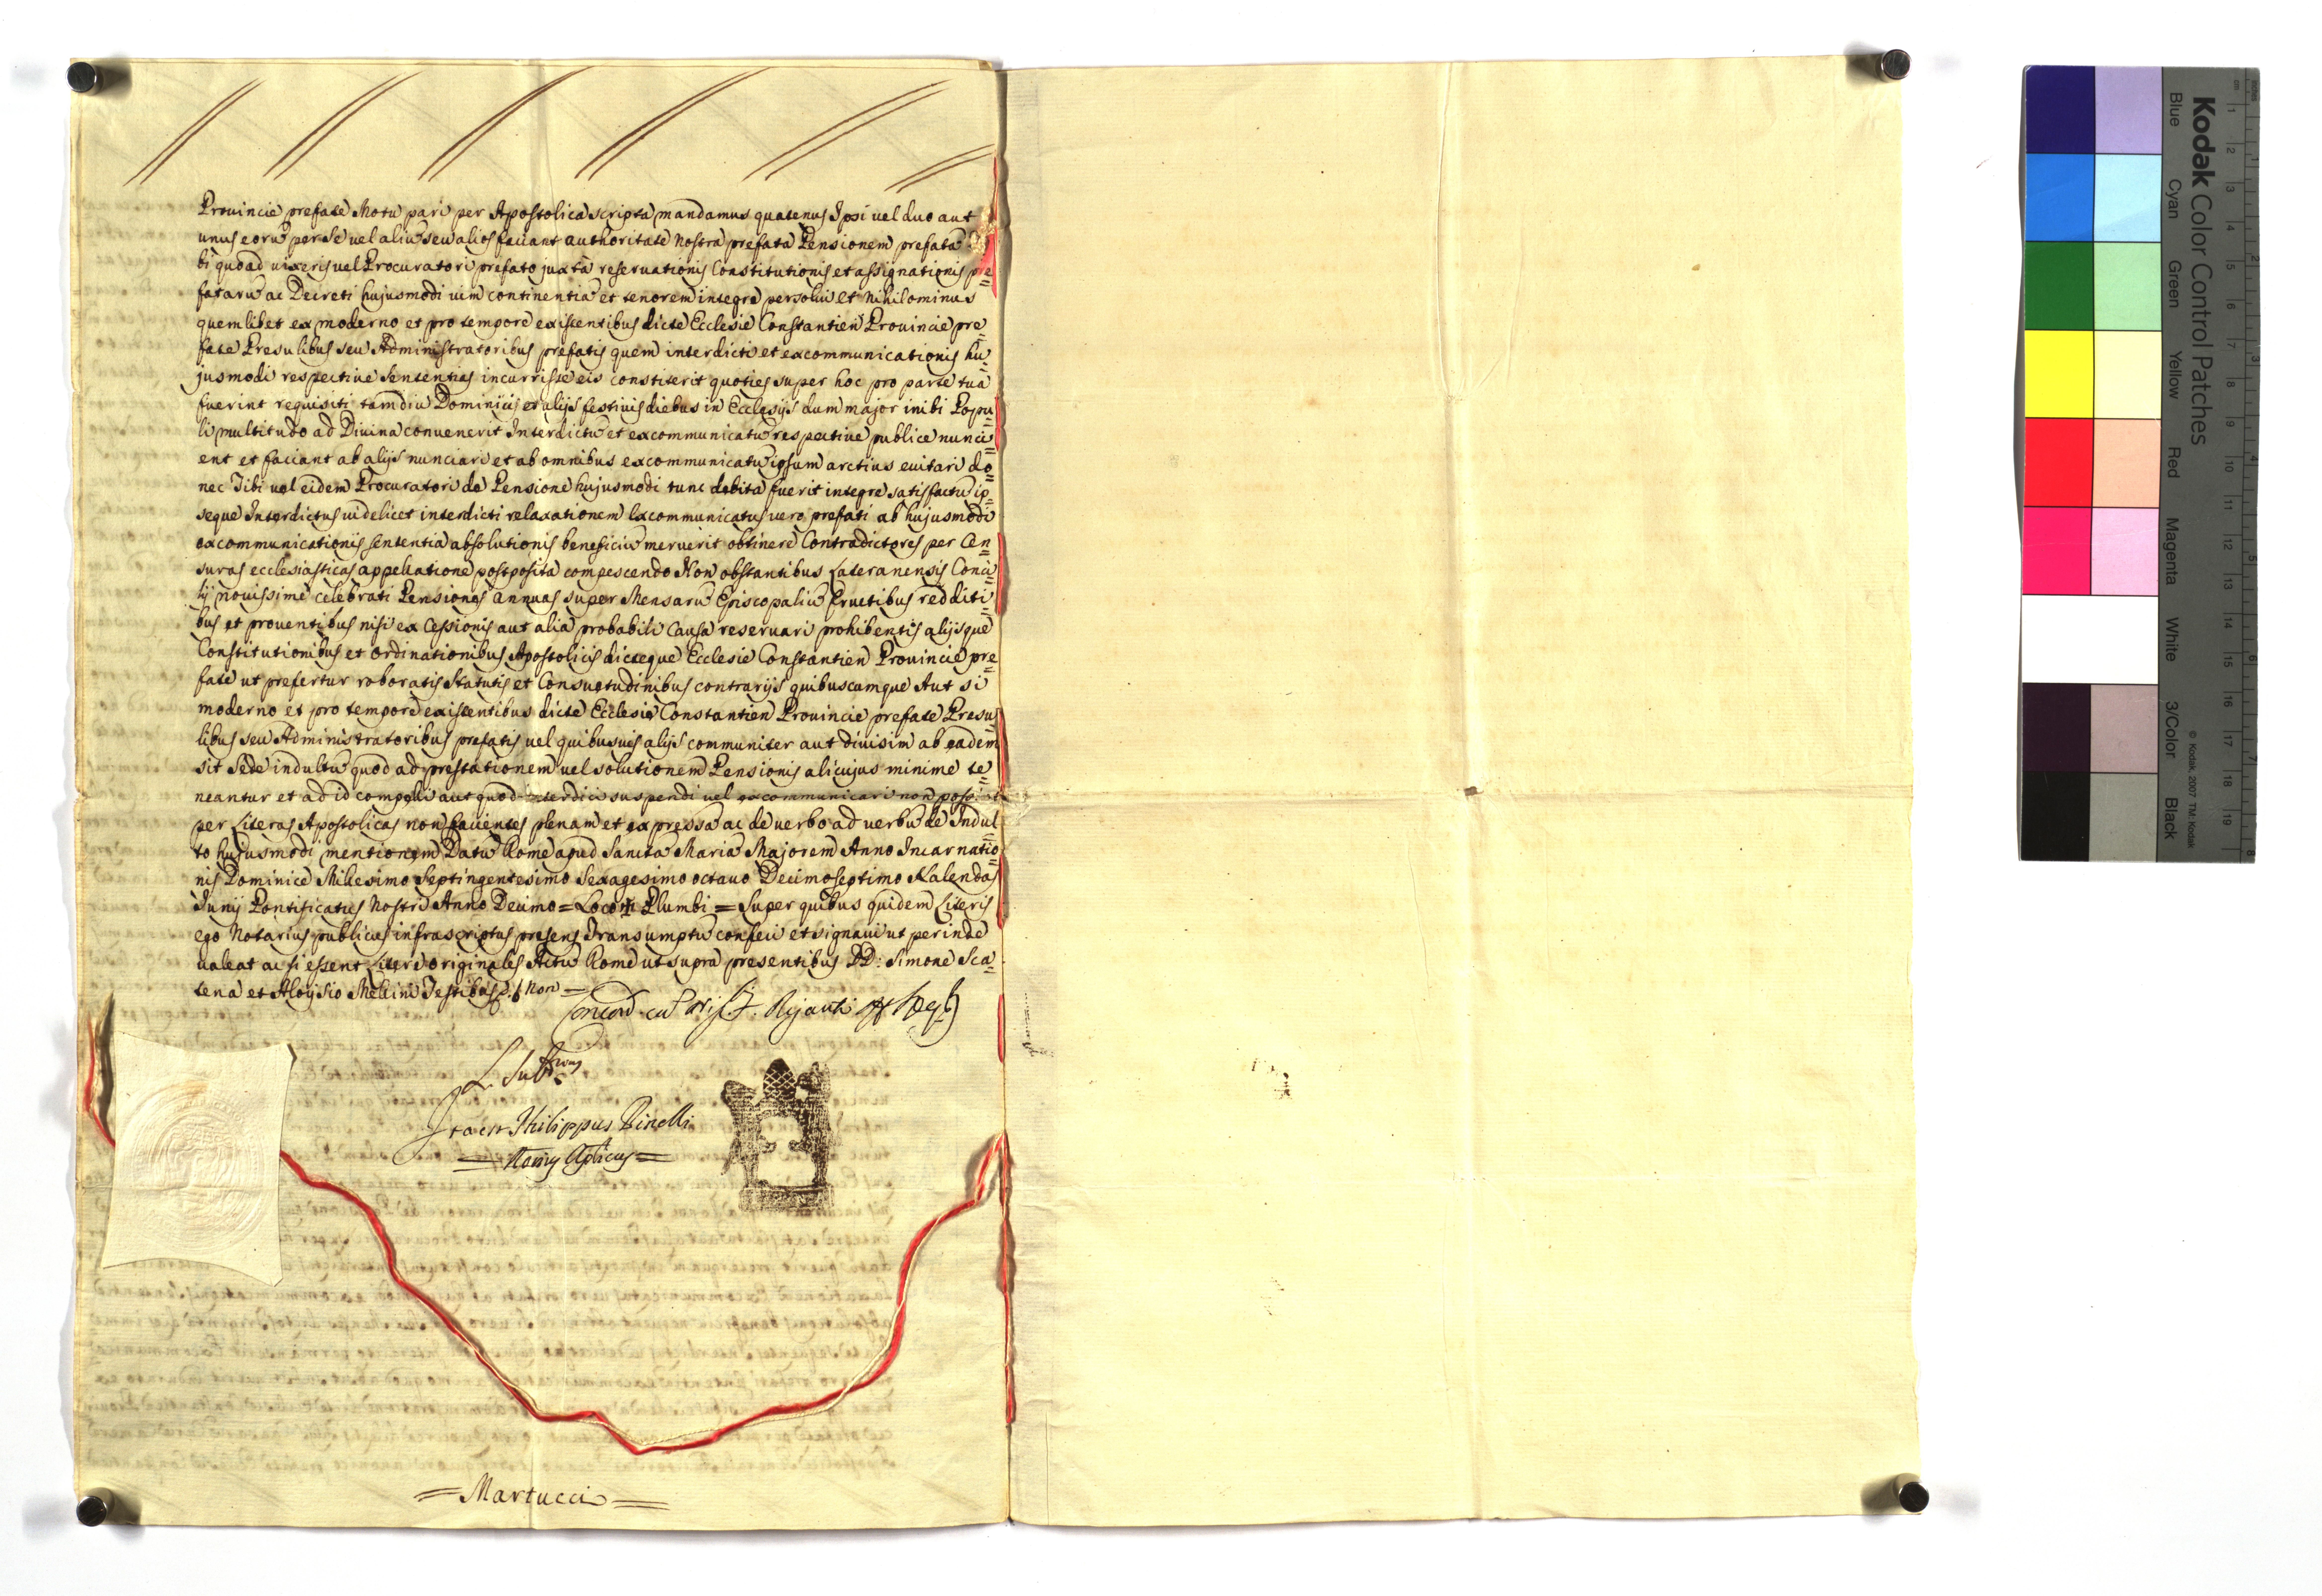 Provincie prefate Motu pari per Apostolica scripta mandamus quatenus Ipsi vel duo aut
unus eorũ per se vel aliũ seu alios faciant authoritate Nostra prefata Pensionem prefatã
bi quoad vixeris vel Procuratori prefato juxta reservationis Constitutionis et assignationis pre
fatarũ ac Decreti hujusmodi vim continentiã et tenorem integre persolvi et Nihilominus
quemlibet ex moderno et pro tempore existentibus dicte Ecclesie Constantien Provincie pre
fate Presulibus seu Administratoribus prefatis quem interdicti et excommunicationis hu
jusmodi respective Sententias incurrisse eis constiterit quoties super hoc pro parte tua
fuerint requisiti tamdiu Dominicis et alijs festivis diebus in Ecclesijs dum major inibi Popu
li multitudo ad Divina convenerit Interdictũ et excommunicatũ respective publice nunci
ent et faciant ab alijs nunciari et ab omnibus excommunicatũ ipsum arctius evitari do
nec Tibi vel eidem Procuratori de Pensione hujusmodi tunc debita fuerit integre satisfactũ ip
seque Interdictus videlicet interdicti relaxationem Excommunicatus vero prefati ab hujusmodi
excommunicationis sententia absolutionis beneficiũ meruerit obtinere Contradictores per Cen
suras ecclesiasticas appellatione postposita compescendo Non obstantibus Lateranensis Conci
lij novissime celebrati Pensiones annuas super Mensarũ Episcopaliũ Fructibus redditi
bus et proventibus nisi ex Cessionis aut alia probabili Causa reservari prohibentis alijsque
Constitutionibus et Ordinationibus Apostolicis dicteque Ecclesie Constantien Provincie pre
fate ut prefertur roboratis Statutis et Consuetudinibus contrarijs quibuscumque Aut si
moderno et pro tempore existentibus dicte Ecclesie Constantien Provincie prefate Presu
libus seu Administratoribus prefatis vel quibusvis alijs communiter aut divisim ab eadem
sit Sede indultũ quod ad prestationem vel solutionem Pensionis alicujus minime te
neantur et ad id compelli aut quod interdici suspendi vel excommunicari non possint
per Literas Apostolicas non facientes plenam et expressã ac de verbo ad verbũ de Indul
to hujusmodi mentionem Datũ Rome apud Sanctã Mariã Majorem Anno Incarnatio
nis Dominice Millesimo Septingentesimo Sexagesimo octavo Decimoseptimo Kalendas
Junij Pontificatus Nostri Anno Decimo = Loco Plumbi = Super quibus quidem Literis
ego Notarius publicus infrascriptus presens Transumptũ confeci et signavi ut perinde
valeat ac si essent Litere originales Actũ Rome ut supra presentibus DD: Simone Sca
tena et Aloysio Mellini Testibus
Concord. cũ
Ita est Philippus Pinelli
= Martucci =
Kodak Color Control Patches
© Kodak, 2007 TM: Kodak
Blue Cyan Green Yellow Red Magenta White 3/Color Black
inches 1 2 3 4 5 6 7 8
cm 1 2 3 4 5 6 7 8 9 10 11 12 13 14 15 16 17 18 19